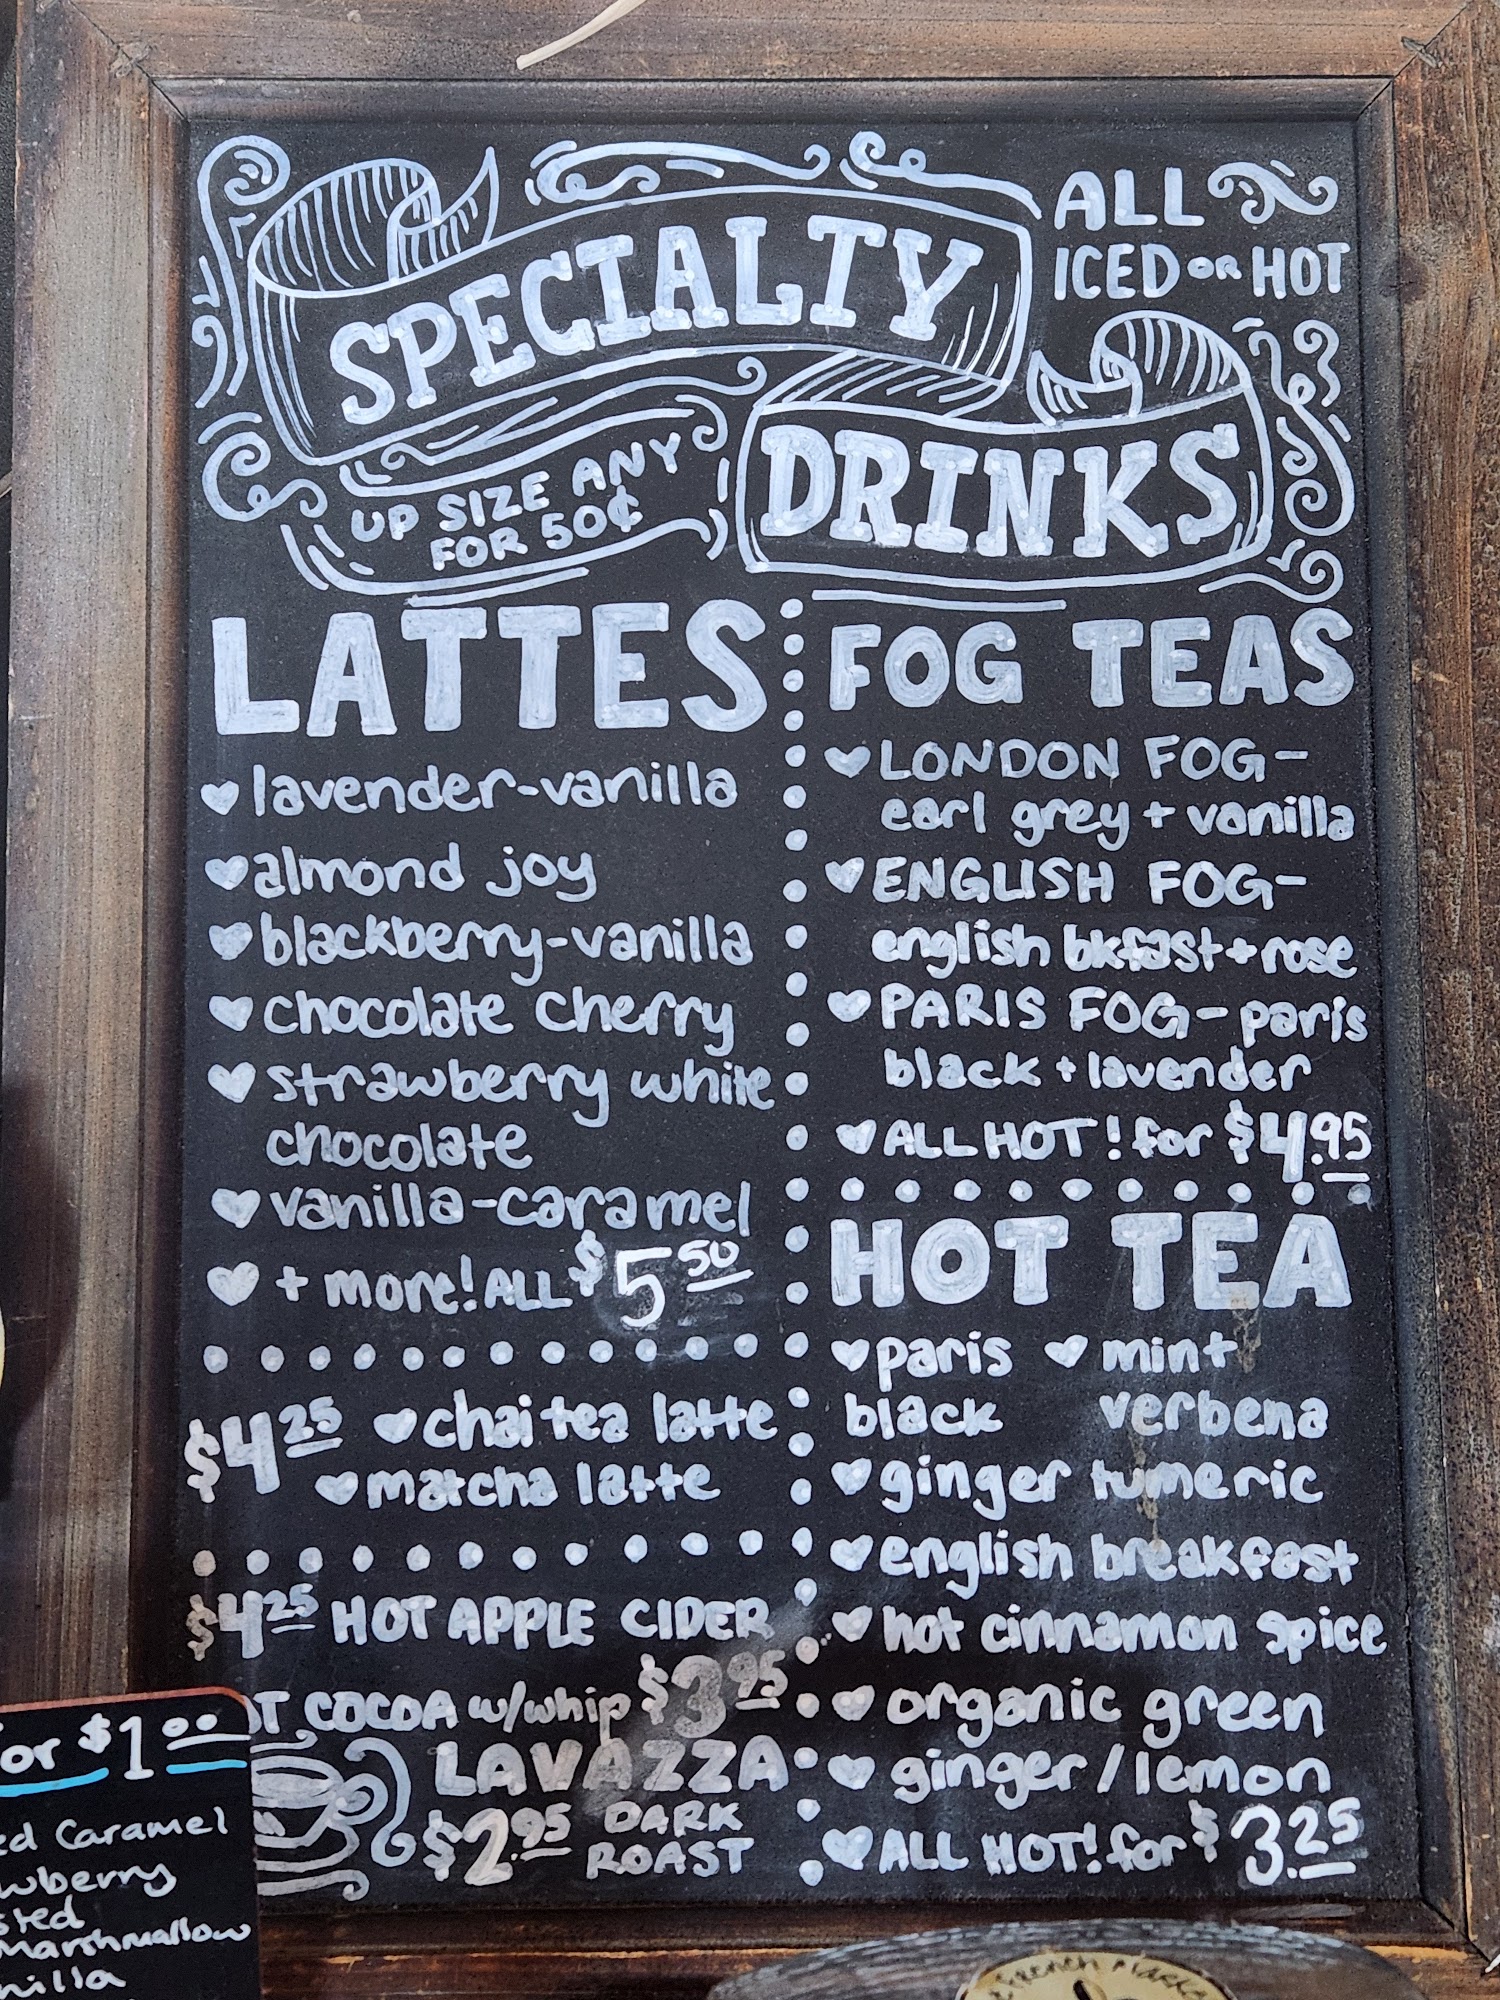 SPECIALTY
DRINKS
ALL
ICED OR HOT
UP SIZE ANY
FOR 50¢
LATTES
♥ lavender-vanilla
♥ almond joy
♥ blackberry-vanilla
♥ chocolate cherry
♥ strawberry white
chocolate
♥ vanilla-caramel
♥ + more! ALL $5.50
$4.25 ♥ chai tea latte
♥ matcha latte
$4.25 HOT APPLE CIDER
COCOA w/whip $3.95
LAVAZZA
$2.95 DARK
ROAST
FOG TEAS
♥ LONDON FOG-
earl grey + vanilla
♥ ENGLISH FOG-
english bkfast + rose
♥ PARIS FOG - paris
black + lavender
♥ ALL HOT! for $4.95
HOT TEA
♥ paris ♥ mint
black verbena
♥ ginger tumeric
♥ english breakfast
♥ hot cinnamon spice
♥ organic green
♥ ginger/lemon
♥ ALL HOT! for $3.25
or $1.00
Caramel
Marshmallow
French Market